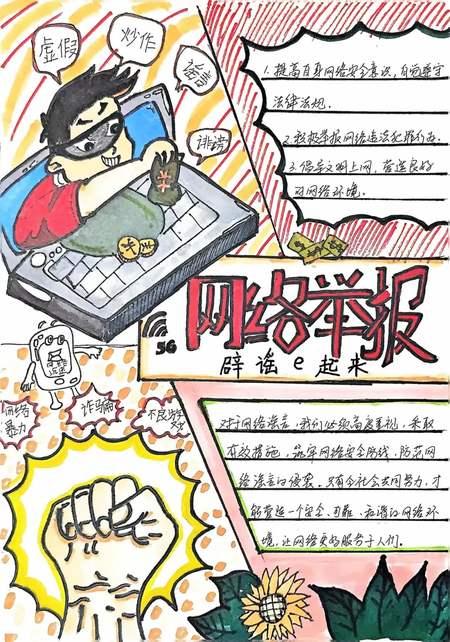 虚假
炒作
谣言
诽谤
1.提高自身网络安全意识,自觉遵守
法律法规。
2.积极举报网络违法犯罪行为。
3.倡导文明上网,营造良好
的网络环境。
5G
网络举报
辟谣e起来
网络
暴力
诈骗
不良
对于网络谣言,我们必须高度重视,采取
有效措施,筑牢网络安全防线,防范网
络谣言的侵袭。只有全社会共同努力,才
能营造一个安全、可靠、和谐的网络环
境,让网络更好服务于人们。